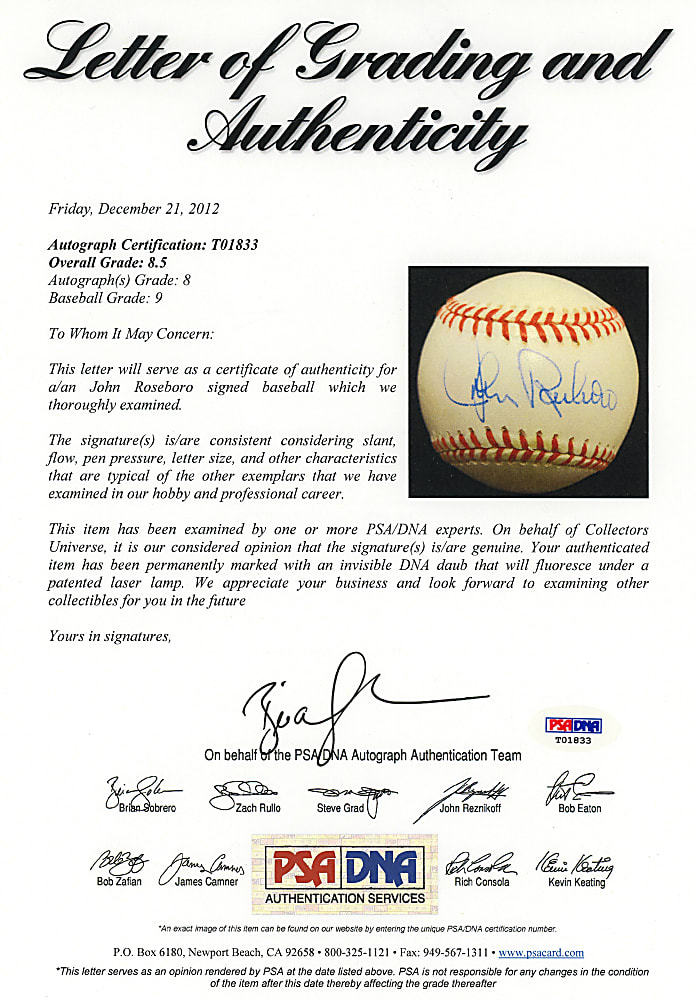 Letter of Grading and
Authenticity
Friday, December 21, 2012
Autograph Certification: T01833
Overall Grade: 8.5
Autograph(s) Grade: 8
Baseball Grade: 9
To Whom It May Concern:
This letter will serve as a certificate of authenticity for
a/an John Roseboro signed baseball which we
thoroughly examined.
John Roseboro
The signature(s) is/are consistent considering slant,
flow, pen pressure, letter size, and other characteristics
that are typical of the other exemplars that we have
examined in our hobby and professional career.
This item has been examined by one or more PSA/DNA experts. On behalf of Collectors
Universe, it is our considered opinion that the signature(s) is/are genuine. Your authenticated
item has been permanently marked with an invisible DNA daub that will fluoresce under a
patented laser lamp. We appreciate your business and look forward to examining other
collectibles for you in the future
Yours in signatures,
PSA DNA
T01833
On behalf of the PSA/DNA Autograph Authentication Team
Brian Sobrero Zach Rullo Steve Grad John Reznikoff Bob Eaton
Bob Zafian James Camner Rich Consola Kevin Keating
PSA DNA
AUTHENTICATION SERVICES
*An exact image of this item can be found on our website by entering the unique PSA/DNA certification number.
P.O. Box 6180, Newport Beach, CA 92658 • 800-325-1121 • Fax: 949-567-1311 • www.psacard.com
*This letter serves as an opinion rendered by PSA at the date listed above. PSA is not responsible for any changes in the condition
of the item after this date thereby affecting the grade thereafter